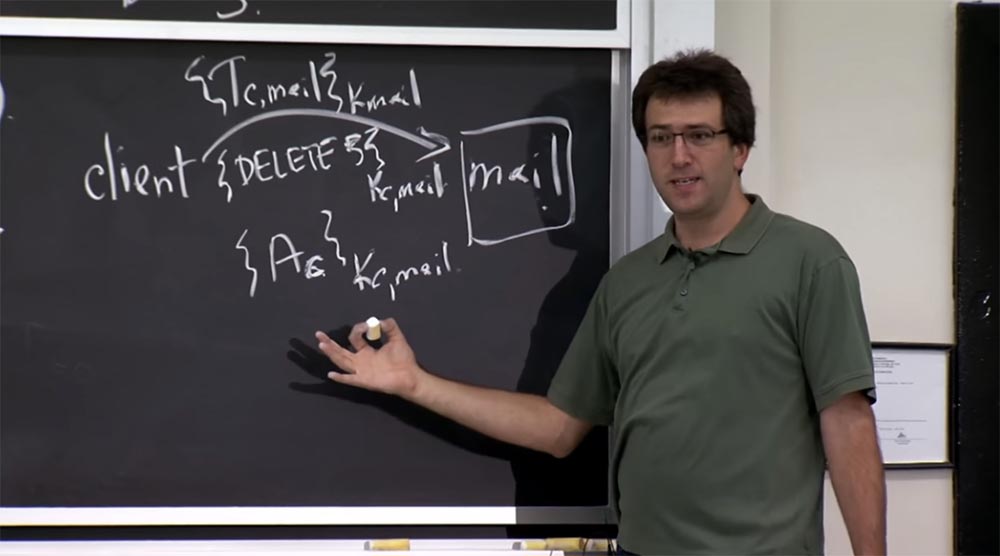 {Tc,mail}Kmail
client {DELETE 5}Kc,mail mail
{Ac}Kc,mail